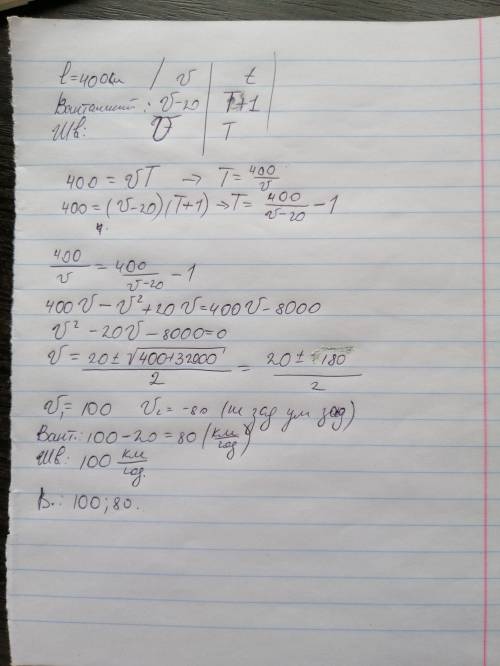 l=400км | v | t
Вантажний: v-20 | T+1
Шв: v | T
400 = vT → T = 400/v
400 = (v-20)(T+1) → T = 400/(v-20) - 1
400/v = 400/(v-20) - 1
400v - v² + 20v = 400v - 8000
v² - 20v - 8000 = 0
v = (20 ± √(400+32000))/2 = (20 ± 180)/2
v₁ = 100 v₂ = -80 (не зад ум зад)
Вант.: 100 - 20 = 80 (км/год)
Шв: 100 км/год.
В.: 100; 80.